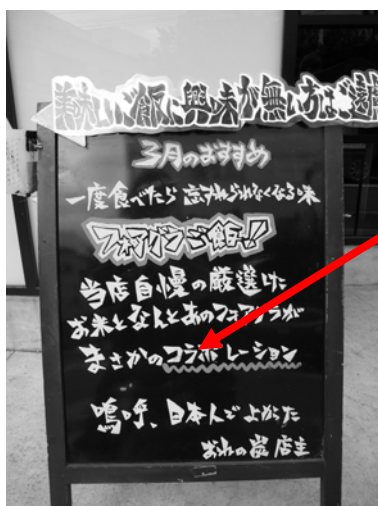 美味しいご飯に興味が無い方はご遠慮
3月のおすすめ
一度食べたら忘れられなくなる味
フォアグラご飯!!
当店自慢の厳選した
お米となんとあのフォアグラが
まさかのコラボレーション
嗚呼、日本人でよかった
おれの炭 店主